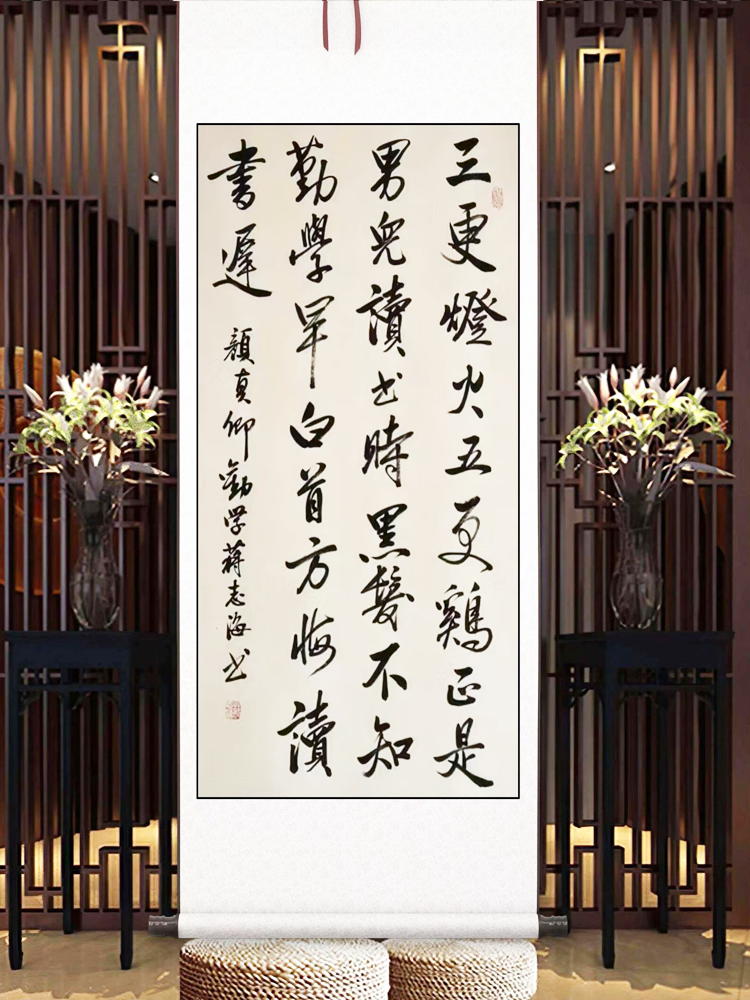 三更燈火五更鷄正是
男兒讀书時黑髮不知
勤學早白首方悔讀
書遲
顏真卿勸学蒋志海书